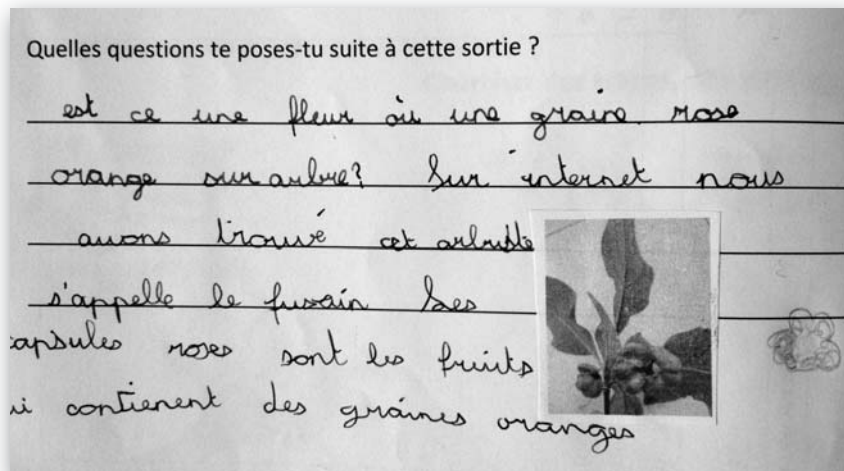 Quelles questions te poses-tu suite à cette sortie ?
est ce une fleur où une graine rose
orange sur arbre? Sur internet nous
avons trouvé cet arbuste
s'appelle le fusain Les
capsules roses sont les fruits
ui contienent des graines oranges